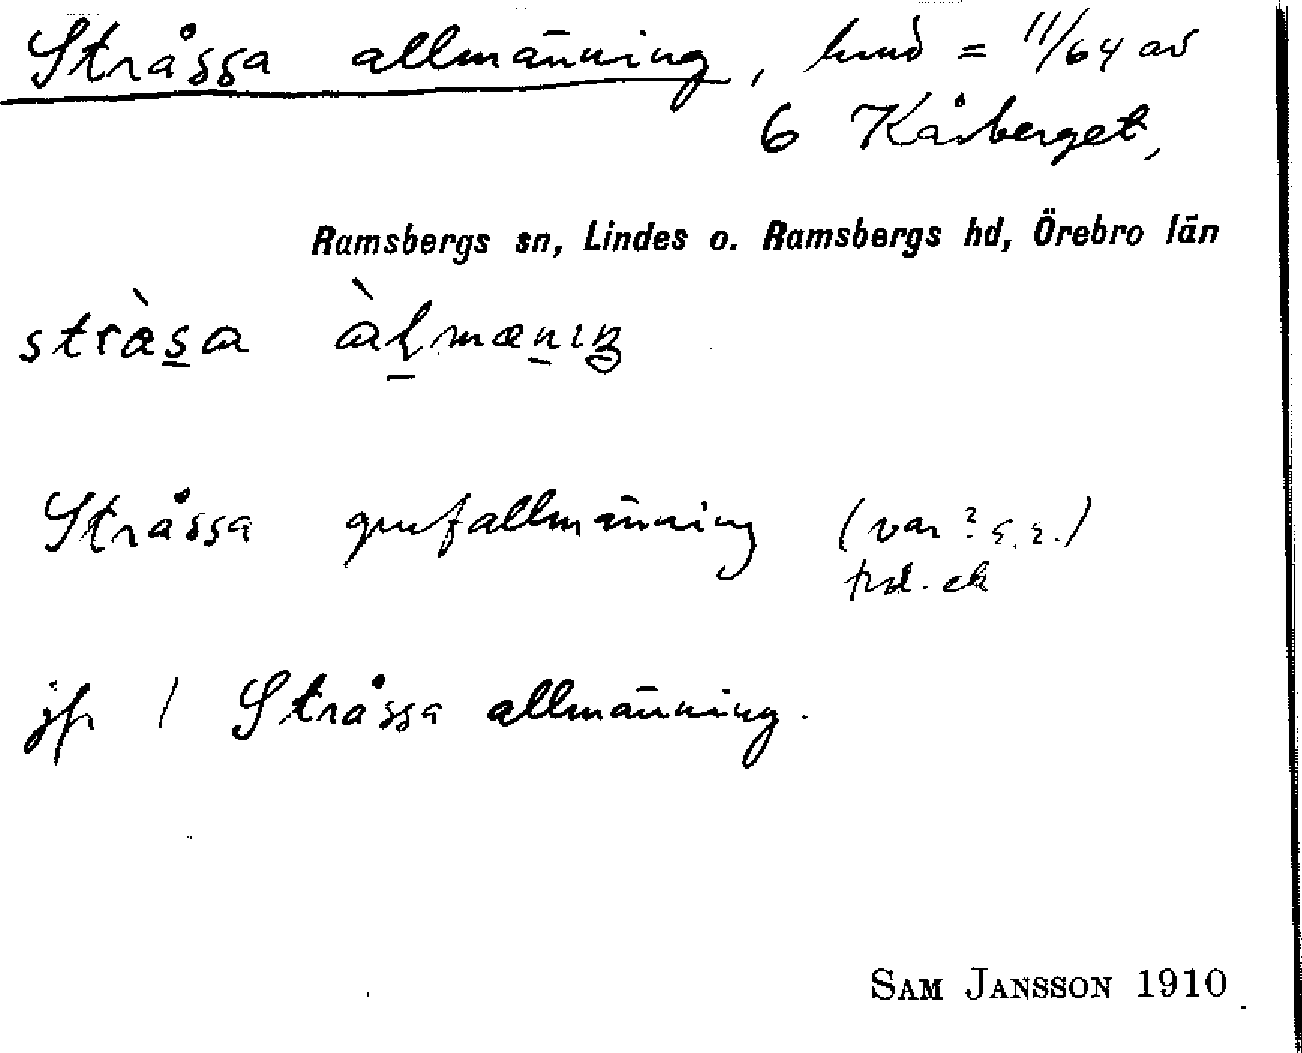 Stråssa allmänning, hmd = 11/64 av
6 Kårberget,
Ramsbergs sn, Lindes o. Ramsbergs hd, Örebro län
stràsa àlmænıŋ
Stråssa grufallmänning (var? s.r.)
jfr 1 Stråssa allmänning.
SAM JANSSON 1910